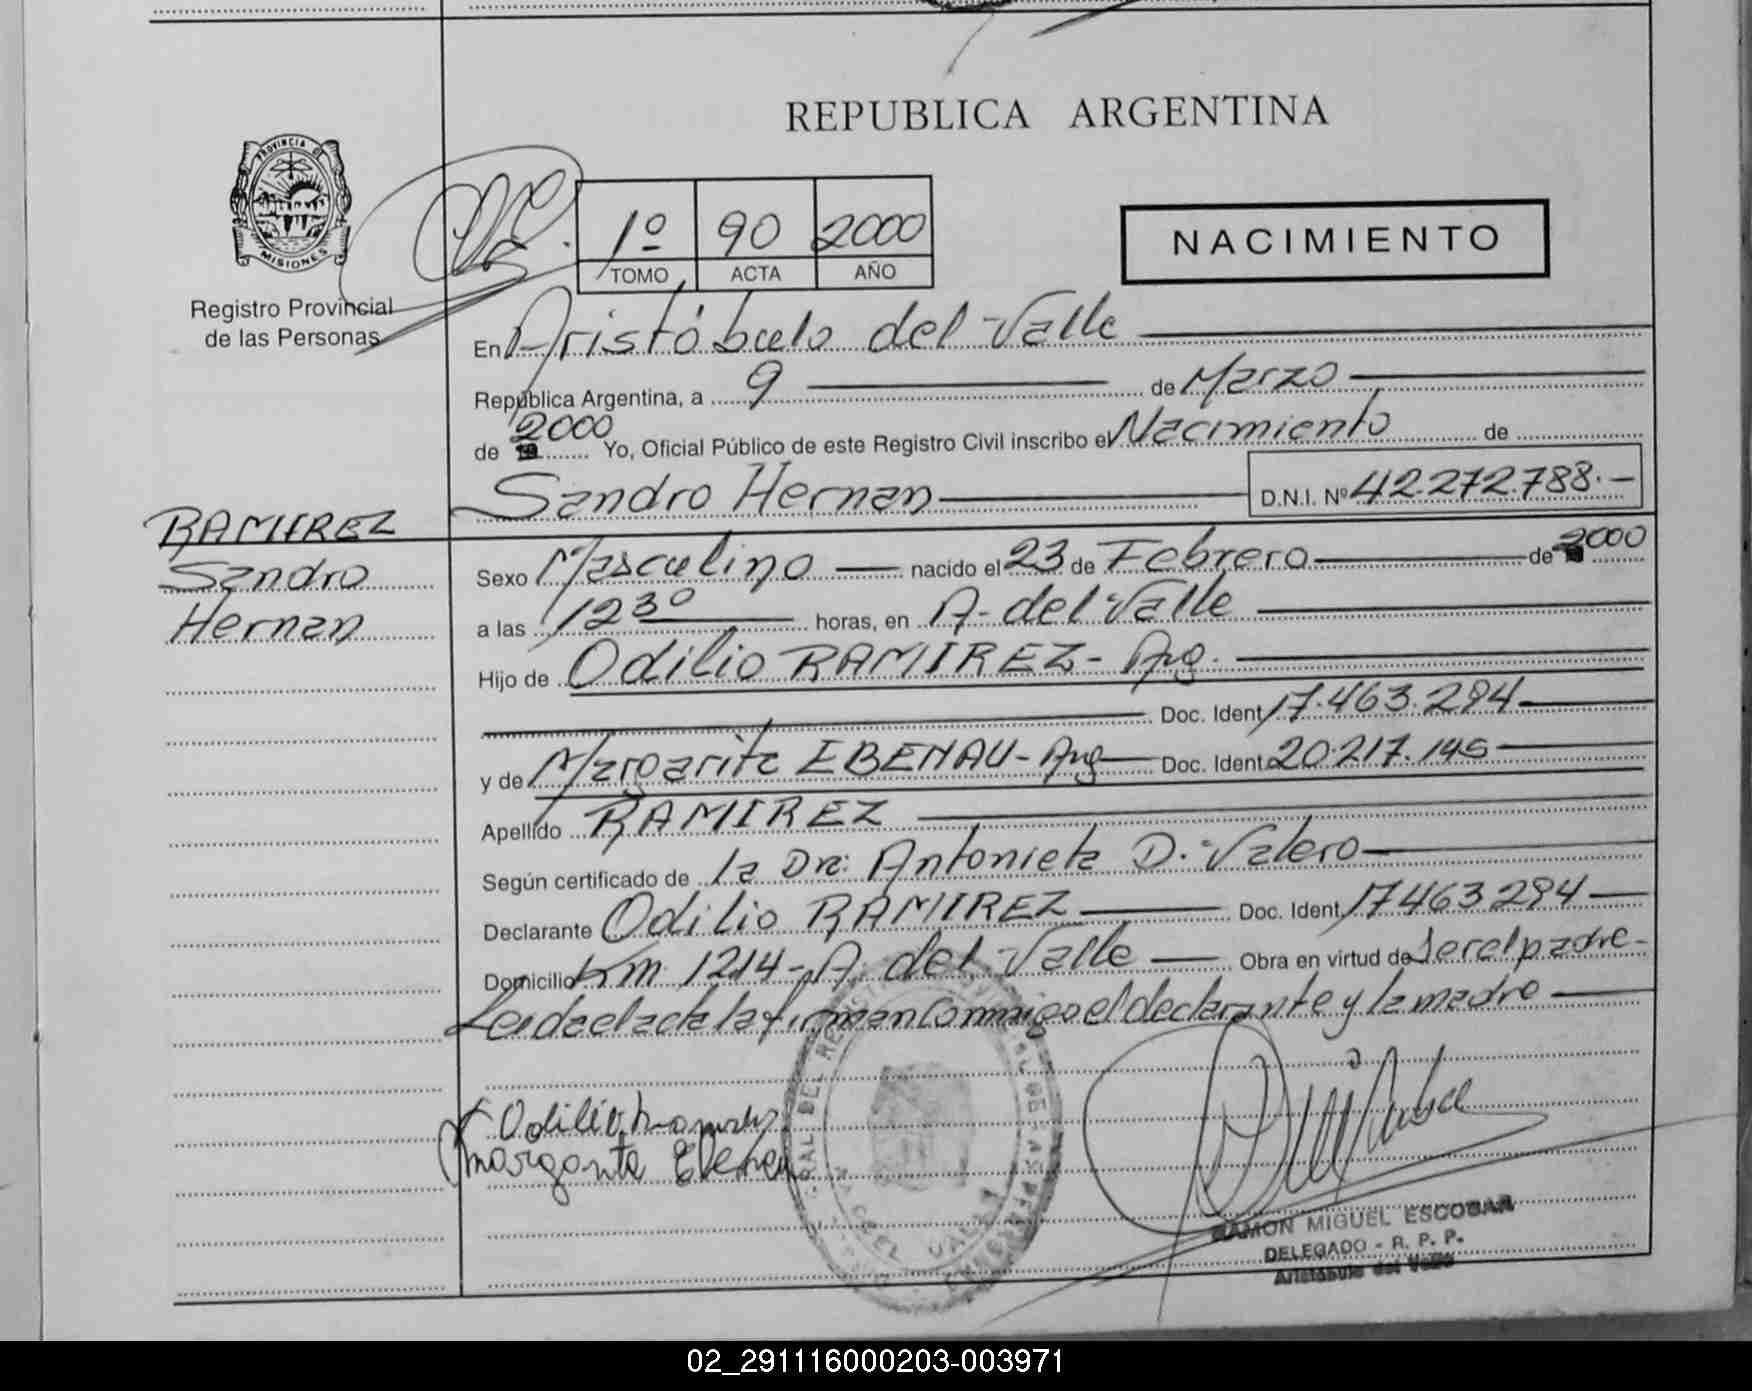 REPUBLICA ARGENTINA
PROVINCIA DE
MISIONES
Registro Provincial
de las Personas
1º 90 2000
TOMO ACTA AÑO
NACIMIENTO
En Aristóbulo del Valle
República Argentina, a 9 de Marzo
de 2000 Yo, Oficial Público de este Registro Civil inscribo el Nacimiento de
Sandro Hernan D.N.I. Nº 42.272.788.-
RAMIREZ
Sandro
Hernan
Sexo Masculino nacido el 23 de Febrero de 2000
a las 12 30 horas, en A. del Valle
Hijo de Odilio RAMIREZ - Arg.
Doc. Ident. 17.463.294
y de Margarita EBENAU - Arg Doc. Ident. 20.217.145
Apellido RAMIREZ
Según certificado de la Dra: Antonieta D. Valero
Declarante Odilio RAMIREZ Doc. Ident. 17463294
Domicilio Km. 1214 - A. del Valle Obra en virtud de ser el padre -
Leida el acta la firman conmigo el declarante y la madre
Odilio Ramirez
Margarita Ebenau
RAMON MIGUEL ESCOBAR
DELEGADO - R. P. P.
Aristóbulo del Valle
02_291116000203-003971